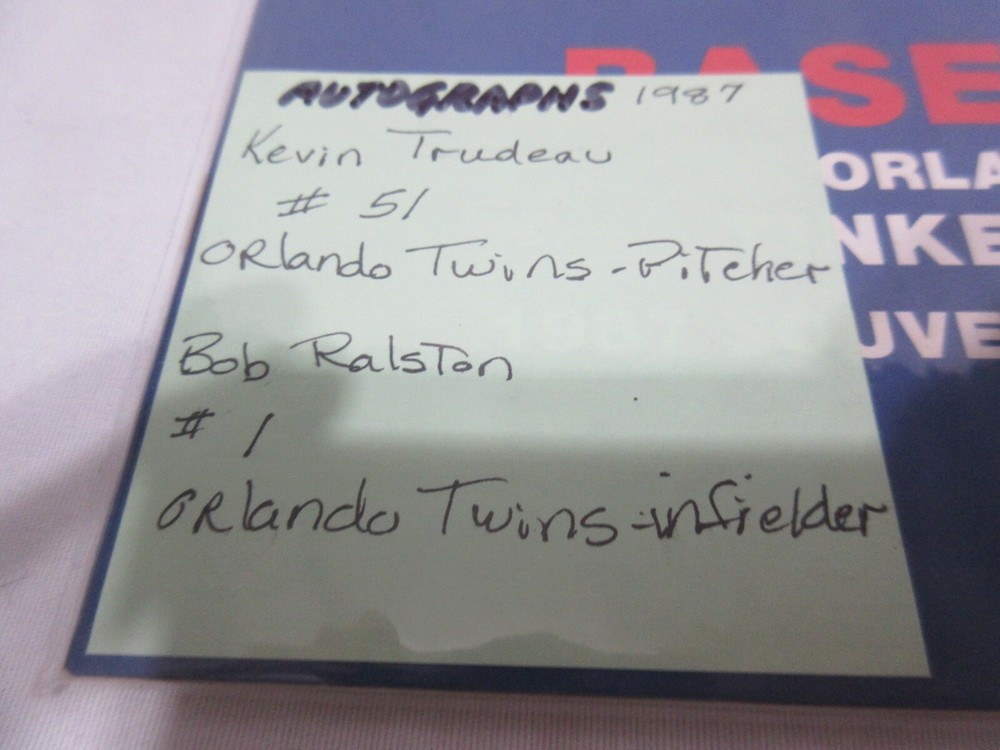 AUTOGRAPHS 1987
Kevin Trudeau
# 51
ORlando Twins - PiTcher
Bob RalsTon
# 1
ORlando Twins - infielder
BASE
ORLA
NKE
UVE